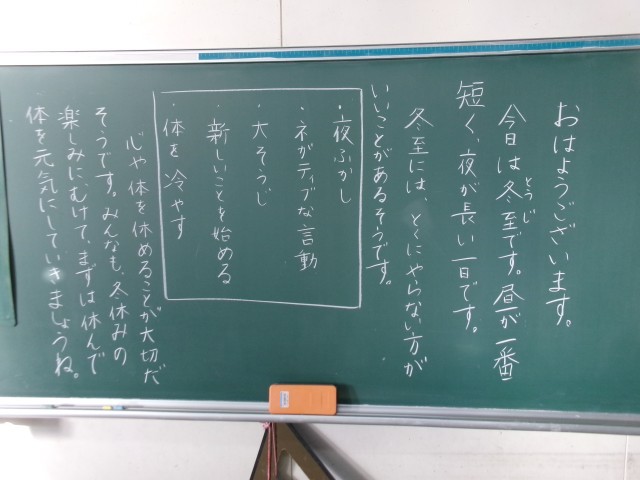 おはようございます。
今日は冬至です。昼が一番
とうじ
短く、夜が長い一日です。
冬至には、とくにやらない方が
いいことがあるそうです。
・夜ふかし
・ネガティブな言動
・大そうじ
・新しいことを始める
・体を冷やす
心や体を休めることが大切だ
そうです。みんなも、冬休みの
楽しみにむけて、まずは休んで
体を元気にしていきましょうね。